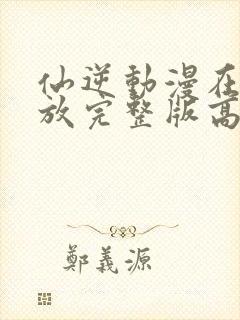 仙逆動漫在
放完整版高
鄭義源